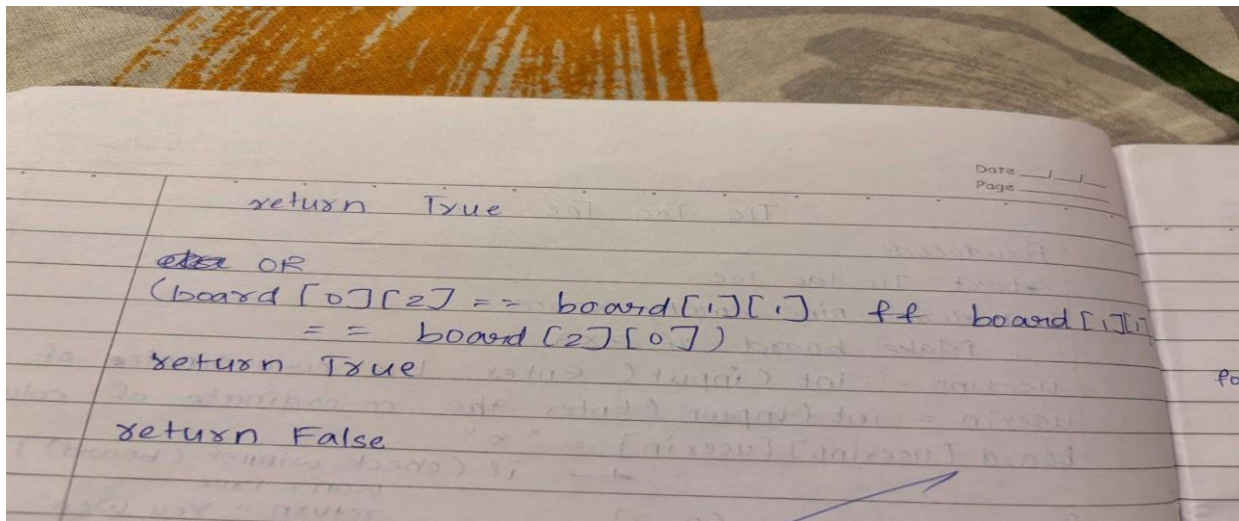 Date
Page
return True
OR
(board [0][2] == board[1][1] ff board[1][1]
== board [2][0])
return True
return False